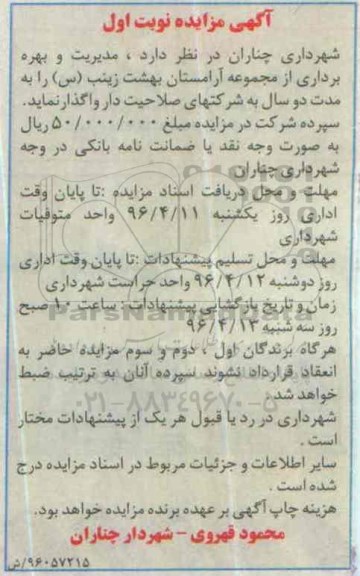 آگهی مزایده نوبت اول
شهرداری چناران در نظر دارد ، مدیریت و بهره
برداری از مجموعه آرامستان بهشت زینب (س) را به
مدت دو سال به شرکتهای صلاحیت دار واگذار نماید.
سپرده شرکت در مزایده مبلغ ۵۰/۰۰۰/۰۰۰ ریال
به صورت وجه نقد یا ضمانت نامه بانکی در وجه
شهرداری چناران
مهلت و محل دریافت اسناد مزایده :تا پایان وقت
اداری روز یکشنبه ۹۶/۴/۱۱ واحد متوفیات
شهرداری
مهلت و محل تسلیم پیشنهادات :تا پایان وقت اداری
روز دوشنبه ۹۶/۴/۱۲ واحد حراست شهرداری
زمان و تاریخ بازگشایی پیشنهادات : ساعت ۱۰ صبح
روز سه شنبه ۹۶/۴/۱۳
هرگاه برندگان اول ، دوم و سوم مزایده حاضر به
انعقاد قرارداد نشوند سپرده آنان به ترتیب ضبط
خواهد شد .
شهرداری در رد یا قبول هر یک از پیشنهادات مختار
است .
سایر اطلاعات و جزئیات مربوط در اسناد مزایده درج
شده است .
هزینه چاپ آگهی بر عهده برنده مزایده خواهد بود.
محمود قهروی - شهردار چناران
۹۶۰۵۷۲۱۵/ش
ParsNamadData
۰۲۱-۸۸۳۴۹۶۷۰-۵